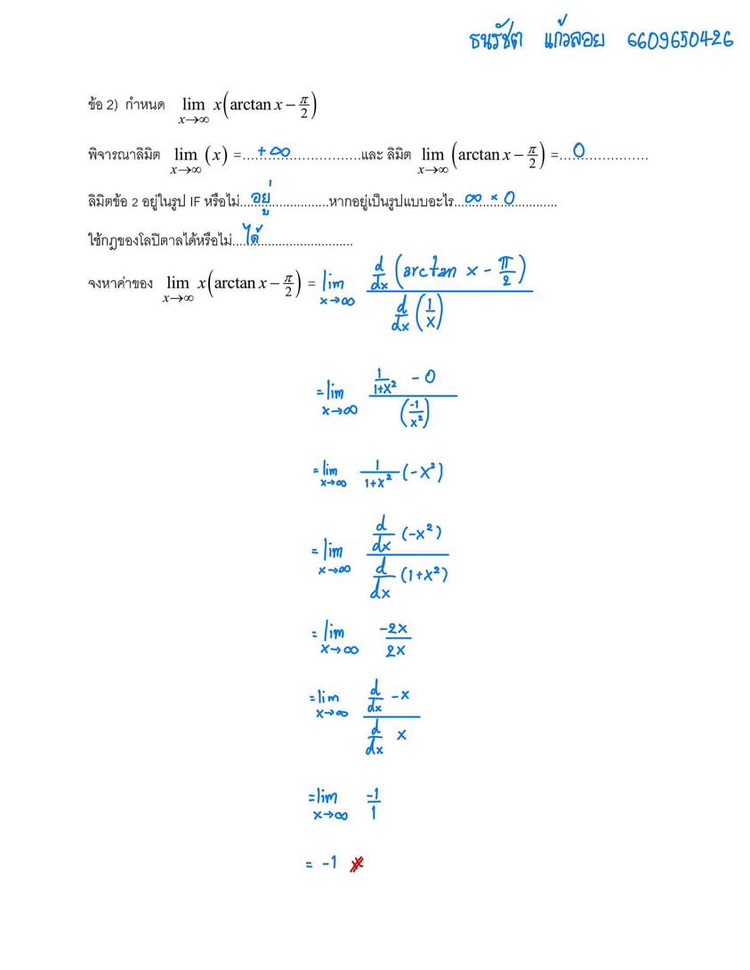 ธนรัชต แก้วลอย 6609650426
ข้อ 2) กำหนด lim x→∞ x(arctan x − π/2)
พิจารณาลิมิต lim x→∞ (x) =....+∞..............................และ ลิมิต lim x→∞ (arctan x − π/2) =....0..................
ลิมิตข้อ 2 อยู่ในรูป IF หรือไม่...อยู่........................หากอยู่เป็นรูปแบบอะไร...∞ × 0............................
ใช้กฎของโลปิตาลได้หรือไม่....ได้..............................
จงหาค่าของ lim x→∞ x(arctan x − π/2) = lim x→∞ d/dx (arctan x − π/2) / d/dx (1/x)
= lim x→∞ (1/(1+x²) − 0) / (−1/x²)
= lim x→∞ 1/(1+x²) (−x²)
= lim x→∞ d/dx (−x²) / d/dx (1+x²)
= lim x→∞ −2x/2x
= lim x→∞ d/dx −x / d/dx x
= lim x→∞ −1/1
= −1